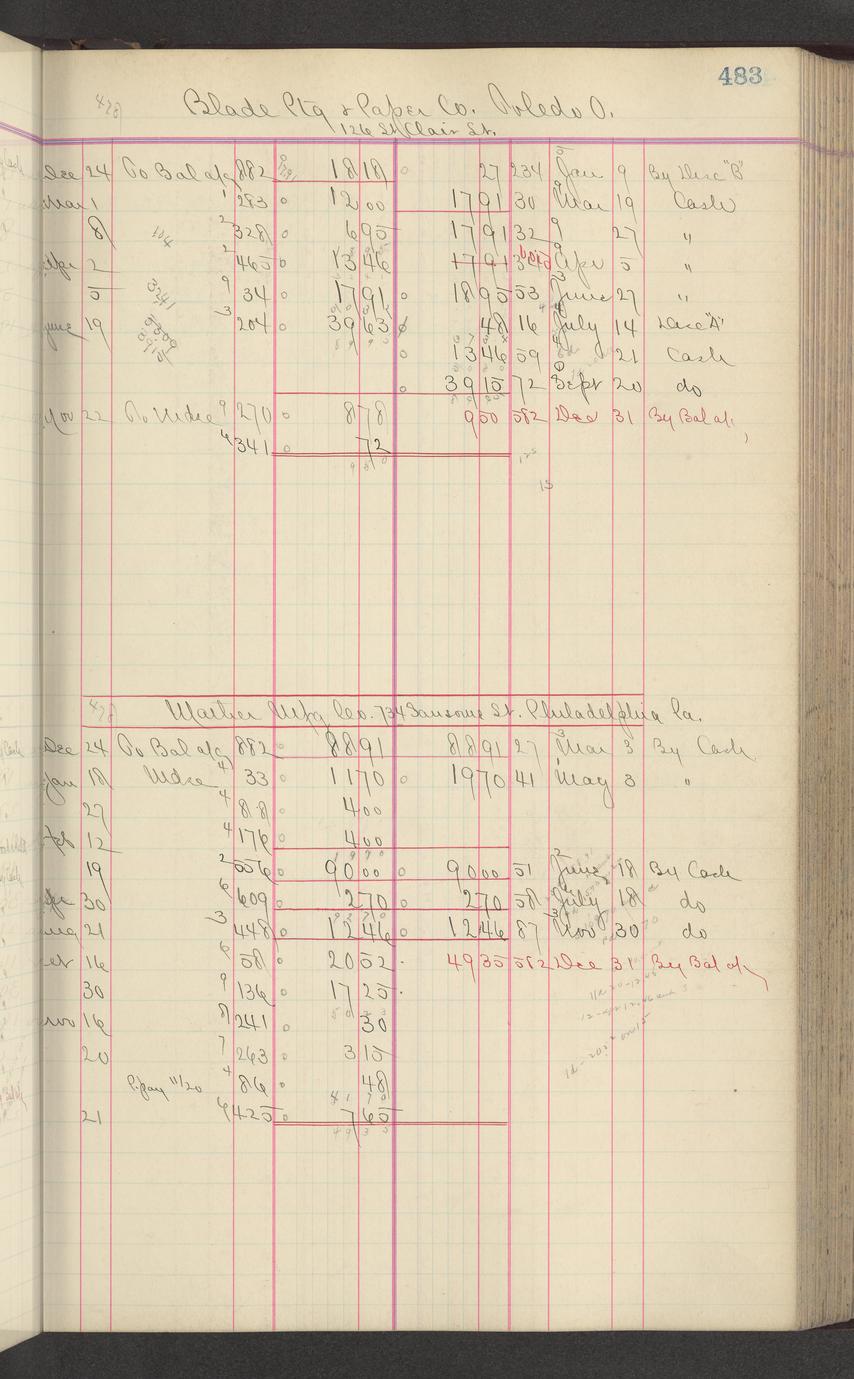 483
478
Blade Ptg & Paper Co. Toledo O.
126 St Clair St.
Dec 24 To Bal a/c 882 18 18 27 234 Jan 9 By Disc "B"
Mar 1 1 283 12 00 17 91 30 Mar 19 Cash
8 2 328 6 95 17 91 32 9 27 "
Apr 2 2 465 13 46 17 91 Apr 5 "
5 9 34 17 91 18 95 53 June 27 "
June 19 3 204 39 63 48 16 July 14 Disc "A"
13 46 59 21 Cash
39 15 72 Sept 20 do
Nov 22 To Mdse 9 270 8 78 9 50 582 Dec 31 By Bal a/c
4 341 72
9 50
125
15
478
Mather Mfg Co. 734 Sansome St. Philadelphia Pa.
Dec 24 To Bal a/c 882 88 91 88 91 27 Mar 3 By Cash
Jan 18 Mdse 4 33 11 70 19 70 41 May 3 "
27 4 88 4 00
Feb 12 4 176 4 00
19 2 556 90 00 90 00 51 June 18 By Cash
Apr 30 6 609 2 70 2 70 58 July 18 do
Aug 21 3 448 12 46 12 46 87 Nov 30 do
Oct 16 6 58 20 52 49 35 582 Dec 31 By Bal a/c
30 9 136 17 25
Nov 16 8 241 30
20 7 263 3 15
Ppay 11/20 4 86 48
21 6 425 7 65
49 35